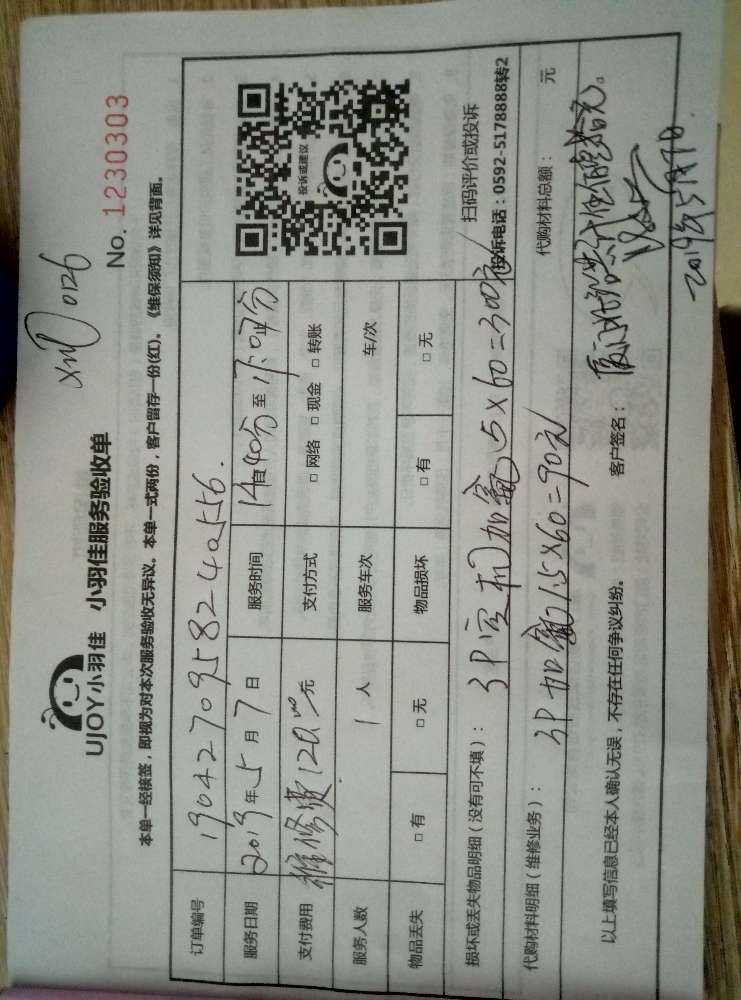 xm 0126
No. 1230303
UJOY小羽佳 小羽佳服务验收单
本单一经接签，即视为对本次服务验收无异议。本单一式两份，客户留存一份(红)。《维保须知》详见背面。
订单编号 190427095824
服务日期 2019年5月7日 服务时间 14时40分至17:07分
支付费用 维修费120元 支付方式 □ 网络 □ 现金 □ 转账
服务人数 1人 服务车次 车/次
物品丢失 □ 有 □ 无 物品损坏 □ 有 □ 无
投诉或建议
扫码评价或投诉
投诉电话：0592-5178888转2
损坏或丢失物品明细（没有可不填）： 3P空机加氟5×60=300元
代购材料明细（维修业务）： 3P加氟1.5×60=90元
代购材料总额： 元
以上填写信息已经本人确认无误，不存在任何争议纠纷。 客户签名：
2019年5月7日